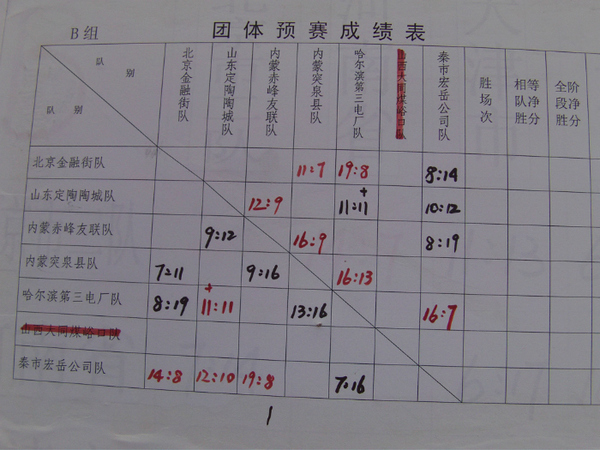 B组 团体预赛成绩表
队别 队别 北京金融街队 山东定陶陶城队 内蒙赤峰友联队 内蒙突泉县队 哈尔滨第三电厂队 山西大同煤峪口队 秦市宏岳公司队 胜场次 相等队净胜分 全阶段净胜分
北京金融街队 11:7 19:8 8:14
山东定陶陶城队 12:9 +11:11 10:12
内蒙赤峰友联队 9:12 16:9 8:19
内蒙突泉县队 7:11 9:16 16:13
哈尔滨第三电厂队 8:19 +11:11 13:16 16:7
山西大同煤峪口队
秦市宏岳公司队 14:8 12:10 19:8 7:16
1